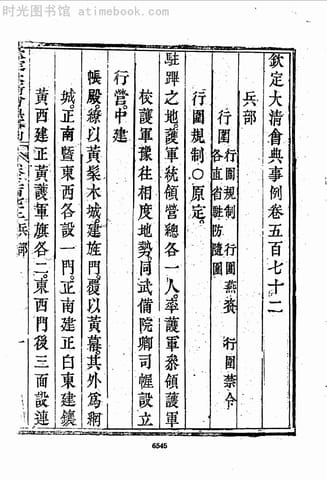 时光图书馆 - atimebook.com
欽定大清會典事例卷五百七十二
兵部
行圍 行圍規制 行圍燕賚 行圍禁令
各直省駐防隨圍
行圍規制○原定。
駐蹕之地。護軍統領營總各一人。率護軍參領護軍
校護軍豫往相度地勢。同武備院卿司幄設立
行營。中建
帳殿。繚以黃髹木城。建旌門。覆以黃幕。其外爲網
城。正南曁東西各設一門。正南建正白東建鑲
黃西建正黃護軍旗各二。東西門後三面設連
兵部
一
6545